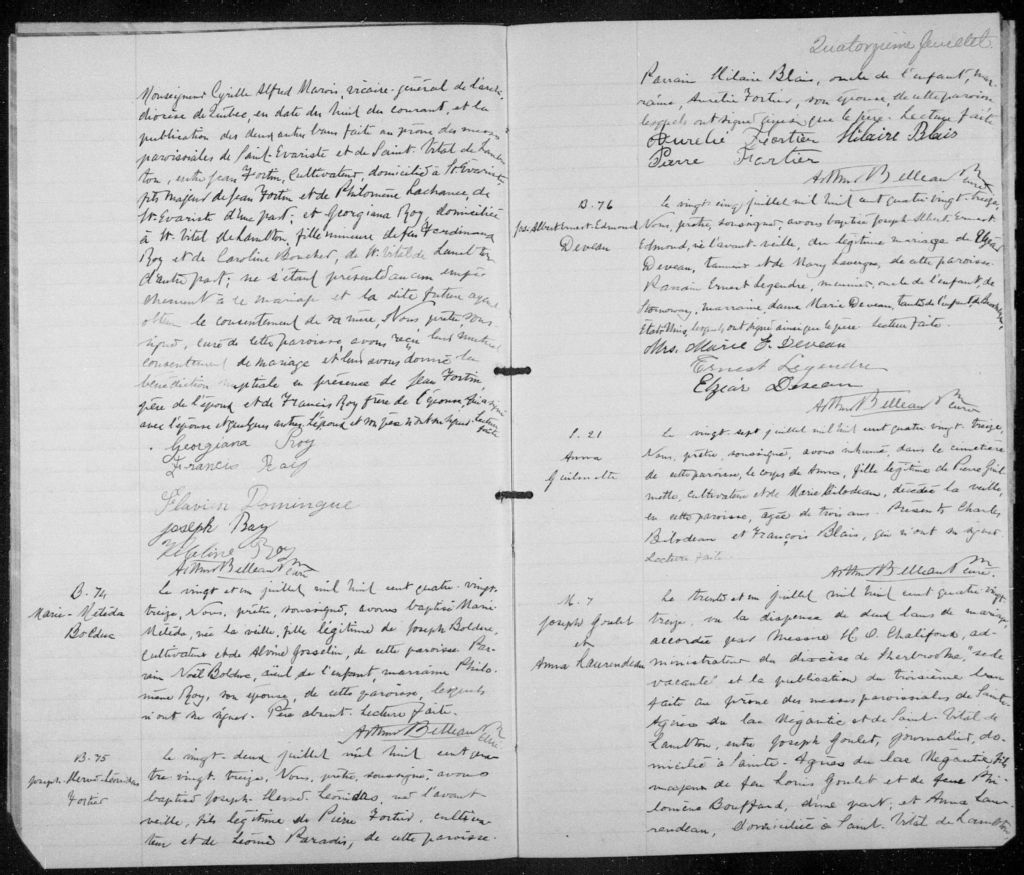 Monseigneur Cyrille Alfred Marois, vicaire-général de l'archi-
diocèse de Québec, en date du huit du courant, et la
publication des deux autres bans faite au prône des messes
paroissiales de Saint-Evariste et de Saint-Vital de Lamb-
ton, entre Jean Fortin, cultivateur, domicilié à St Evariste,
fils majeur de Jean Fortin et de Philomène Lachance, de
St-Evariste d'une part; et Georgiana Roy, domiciliée
à St. Vital de Lambton, fille mineure de feu Ferdinand
Roy et de Caroline Boucher, de St. Vital de Lambton
d'autre part; ne s'étant présenté aucun empê-
chement à ce mariage et la dite future ayant
obtenu le consentement de sa mère, Nous, prêtre sous-
signé, curé de cette paroisse, avons reçu leur mutuel
consentement de mariage et leur avons donné la
bénédiction nuptiale en présence de Jean Fortin,
père de l'époux et de Francis Roy frère de l'épouse qui a signé
avec l'épouse et quelques autres. L'époux et son père n'ont su signer. Lecture
faite
Georgiana Roy
Francis Roy
Flavien Domingue
Joseph Roy
Zépheline Roy
Arthur Belleau Ptre
Curé
B. 74
Marie-Méléda
Bolduc
Le vingt et un juillet mil huit cent quatre-vingt-
treize, Nous, prêtre, soussigné, avons baptisé Marie
Méléda, née la veille, fille légitime de Joseph Bolduc,
cultivateur et de Alvine Gosselin, de cette paroisse. Par-
rain Noël Bolduc, aïeul de l'enfant, marraine Philo-
mène Roy, son épouse, de cette paroisse, lesquels
n'ont su signer. Père absent. Lecture faite.
Arthur Belleau Ptre
Curé
B. 75
Joseph-Hervé-Léonidas
Fortier
Le vingt-deux juillet mil huit cent qua-
tre-vingt-treize, Nous, prêtre, soussigné, avons
baptisé Joseph Hervé Léonidas, né l'avant
veille, fils légitime de Pierre Fortier, cultiva-
teur et de Léonie Paradis, de cette paroisse.
Quatorzième feuillet
Parrain Hilaire Blais, oncle de l'enfant, mar-
raine, Aurélie Fortier, son épouse, de cette paroisse
lesquels ont signé ainsi que le père. Lecture faite
Aurelie Fortier Hilaire Blais
Pierre Fortier
Arthur Belleau Ptre
Curé
B. 76
Jos: Albert-Ernest-Edmond
Deveau
Le vingt-cinq juillet mil huit cent quatre-vingt-treize,
Nous, prêtre, soussigné, avons baptisé Joseph Albert Ernest
Edmond, né l'avant-veille, du légitime mariage de Elzéar
Deveau, tanneur et de Mary Lavergne, de cette paroisse.
Parrain Ernest Legendre, meunier, oncle de l'enfant, de
Stornoway, marraine, dame Marie Deveau, tante de l'enfant, de
États-Unis, lesquels ont signé ainsi que le père. Lecture faite.
Mrs. Marie E. Deveau
Ernest Légendre
Elzéar Deveau
Arthur Belleau Ptre
Curé
S. 21
Anna
Guilmette
Le vingt-sept juillet mil huit cent quatre-vingt-treize,
Nous, prêtre, soussigné, avons inhumé, dans le cimetière
de cette paroisse, le corps de Anna, fille légitime de Pierre Guil-
mette, cultivateur et de Marie Bilodeau, décédée la veille,
en cette paroisse, âgée de trois ans. Présents Charles
Bilodeau et François Blais, qui n'ont su signer.
Lecture faite.
Arthur Belleau Ptre
Curé.
M. 7
Joseph Goulet
et
Anna Laurendeau
Le trente et un juillet mil huit cent quatre-vingt-
treize, vu la dispense de deux bans de mariage,
accordée par Messire H. O. Chalifoux, ad-
ministrateur du diocèse de Sherbrooke, "sede
vacante" et la publication du troisième ban
faite au prône des messes paroissiales de Sainte-
Agnès du lac Mégantic et de Saint-Vital de
Lambton, entre Joseph Goulet, journalier, do-
micilié à Sainte-Agnès du lac Mégantic, fils
majeur de feu Louis Goulet et de feue Phi-
lomène Bouffard, d'une part; et Anna Lau-
rendeau, domiciliée à Saint-Vital de Lambton,